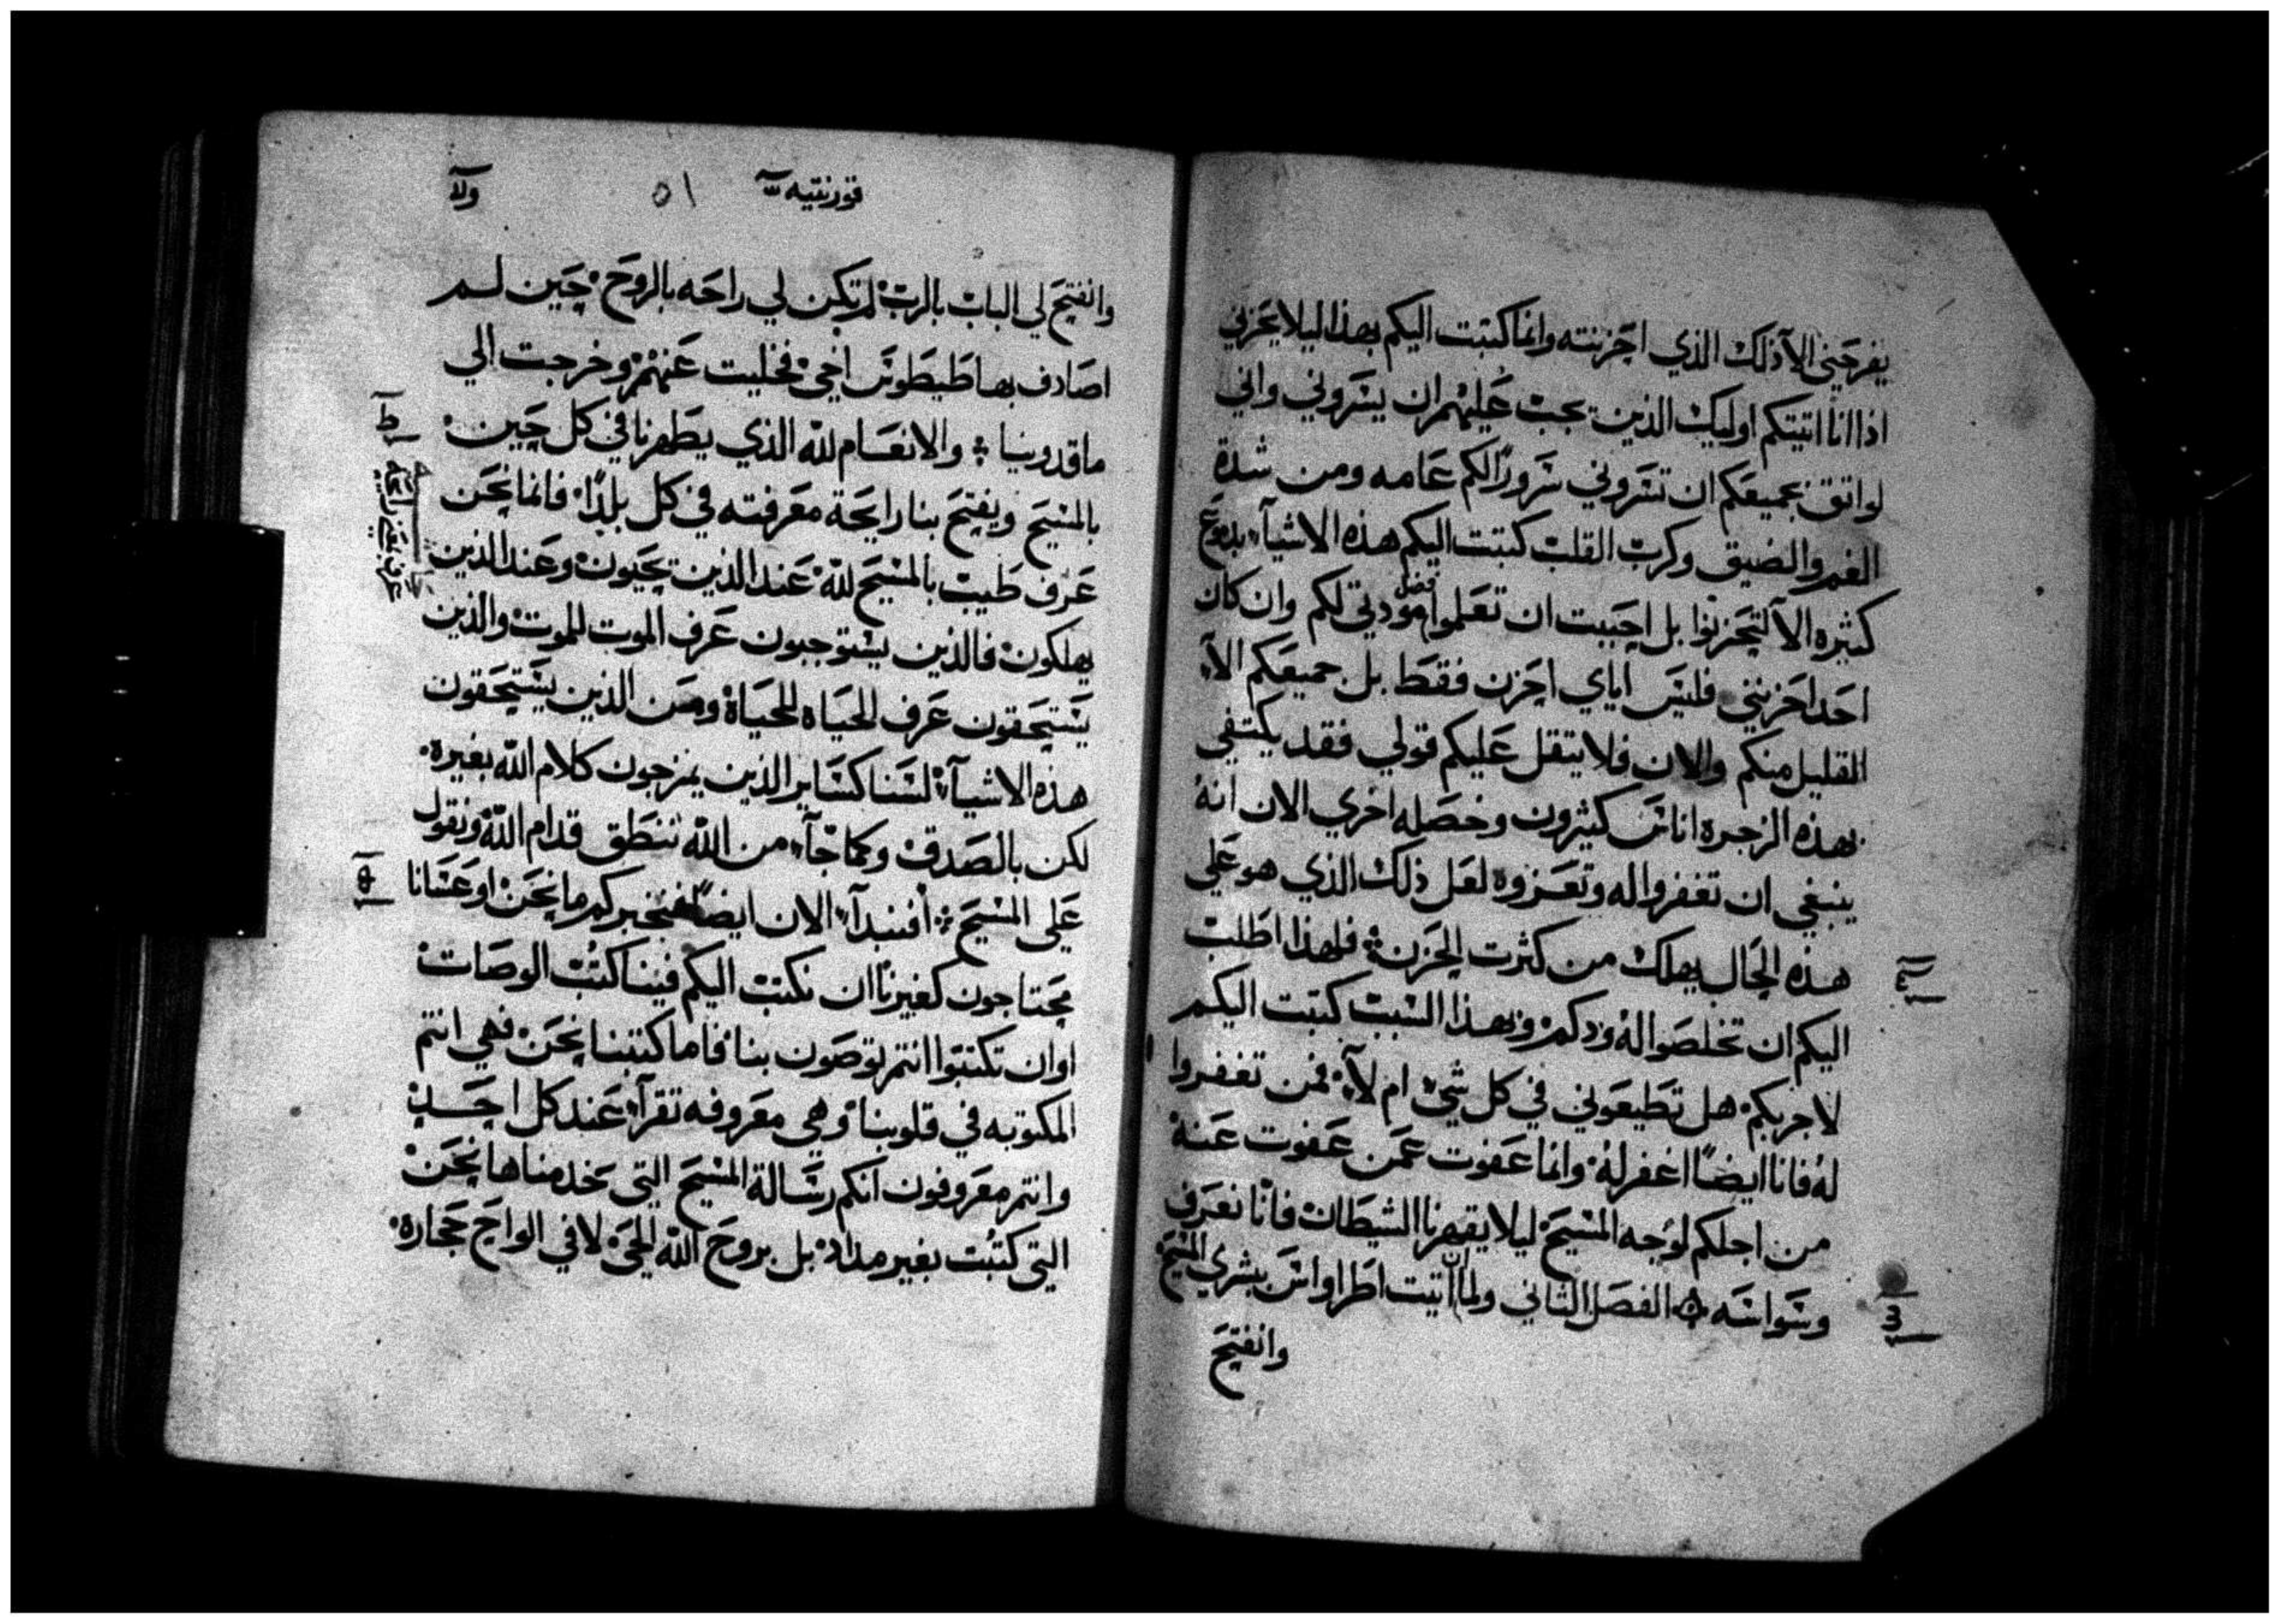 يفرحني الا ذلك الذي احزنته وانما كتبت اليكم بهذا ليلا يحزني
اذا انا اتيتكم اوليك الذين يجب عليهم ان يسروني واني
لواثق بجميعكم ان تسروني سرورًا لكم عامه ومن شدة
الغم والضيق وكرب القلب كتبت اليكم هذه الاشيآء بدموع
كثيره الا لتحزنوا بل احببت ان تعلموا فضل مودتي لكم وان كان
احدا حزنني فليس اياي احزن فقط بل جميعكم الا
القليل منكم والان فلا يثقل عليكم قولي فقد يكتفي
بهذه الزجرة اناس كثيرون وخصله اخري الان انهُ
ينبغي ان تغفروا له وتعزوه لعل ذلك الذي هو علي
هذه الحال يهلك من كثرت الحزن فلهذا اطلب
اليكم ان تخلصوا لهُ ودكم وبهذا السبب كتبت اليكم
لاجربكم هل تطيعوني في كل شي ام لآ فمن تغفروا
لهُ فانا ايضًا اغفر لهُ وانما عفوت عمن عفوت عنهُ
من اجلكم لوجه المسيح ليلا يقهرنا الشيطان فانا نعرف
وسواسه الفصل الثاني ولما ان اتيت اطراواس ببشري المسيح
وانفتح
قورنتيه
٥١
وانفتح لي الباب بالرب لم تكن لي راحه بالروح حين لم
اصادف بها طيطوس اخي فخليت عنهم وخرجت الي
ماقدونيا والانعام لله الذي يظهرنا في كل حين
بالمسيح ويفتح بنا رايحة معرفته في كل بلدًا فانما نحن
عرف طيب بالمسيح لله عند الذين يحيون وعند الذين
يهلكون فالذين يستوجبون عرف الموت للموت والذين
يستحقون عرف الحياه للحياة ومن الذين يستحقون
هذه الاشيآء لسنا كساير الذين يمزجون كلام الله بغيره
لكن بالصدق وكما جآء من الله ننطق قدام الله ونقول
علي المسيح أفنبدآ الان ايضًا فنخبركم ما نحن او عسانا
محتاجون كغيرنا ان نكتب اليكم فينا كتب الوصات
او ان تكتبوا انتم توصون بنا فاما كتبنا نحن فهي انتم
المكتوبه في قلوبنا وهي معروفه تقرآ عند كل احد
وانتم معروفون انكم رسالة المسيح التي خدمناها نحن
التي كتبت بغير مداد بل بروح الله الحي لا في الواح حجاره